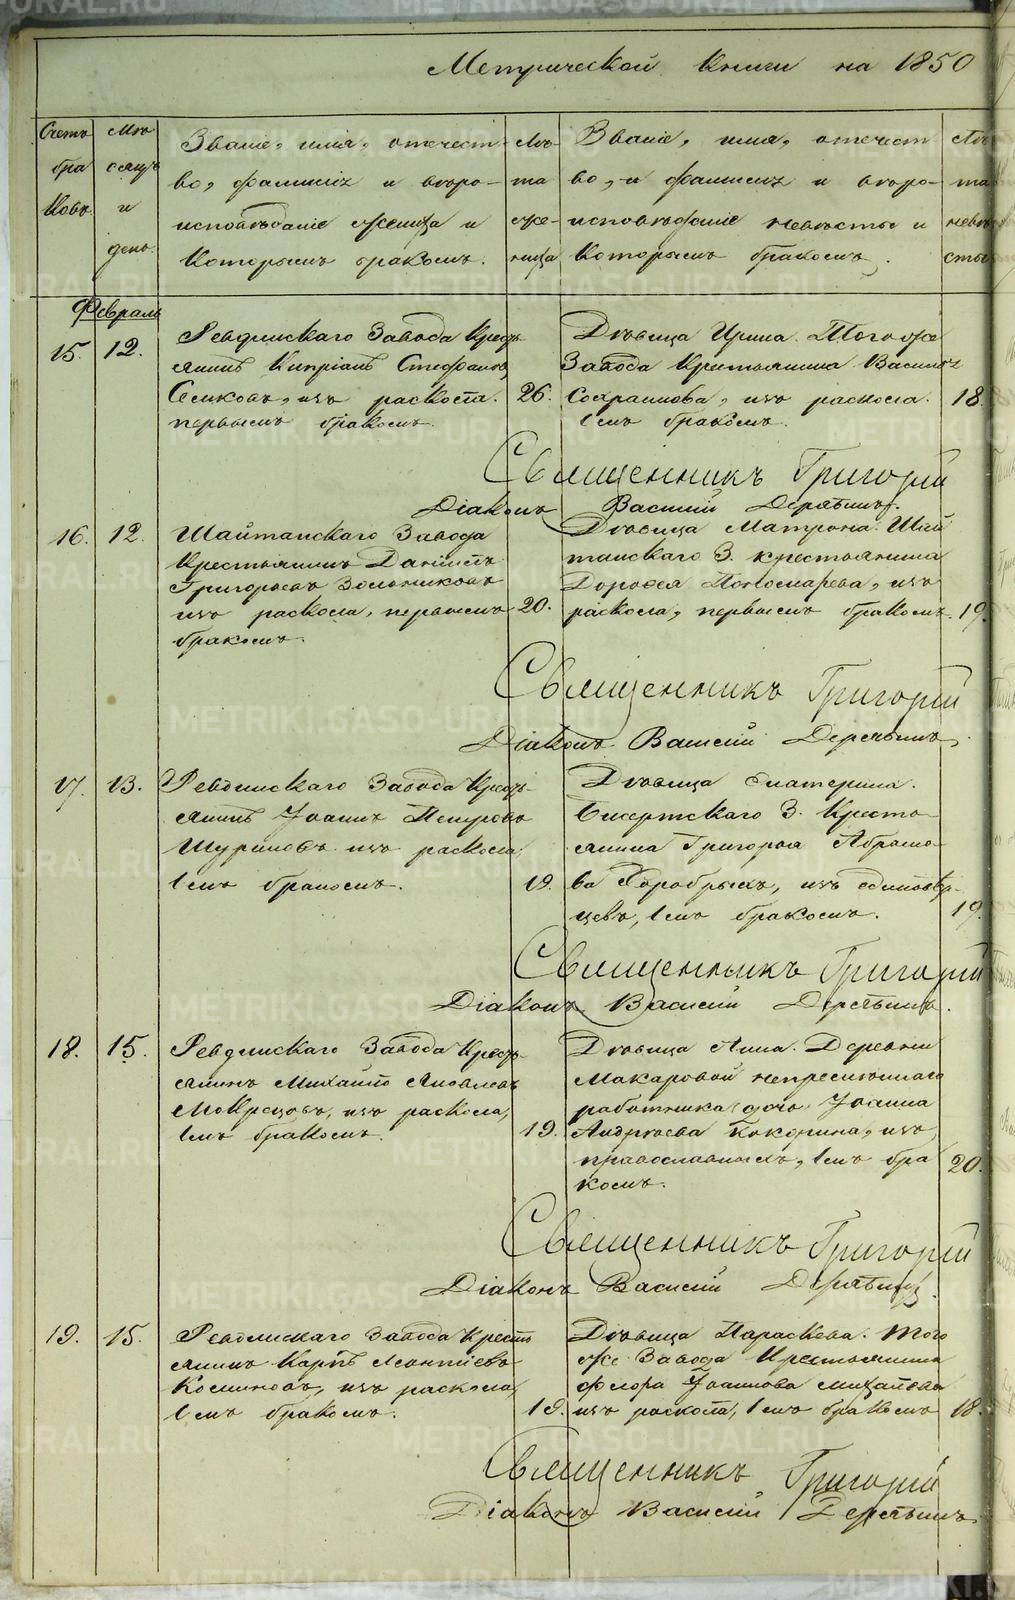 Метрической Книги на 1850
Счетъ бра ковъ.
Мѣ сяцъ и день.
Званіе, имя, отечест-
во, фамилія и вѣро-
исповѣданіе жениха и
которымъ бракомъ.
Лѣ-
та
же-
ниха
Званіе, имя, отечест
во, и фамилія и вѣро-
исповѣданіе невѣсты и
которымъ бракомъ.
Лѣ-
та
невѣ
сты
Февраль
15. 12.
Ревдинскаго Завода Крест-
янинъ Кипріанъ Стефановъ
изъ раскола. 26.
первымъ бракомъ.
Дѣвица Ирина. Тогоже
Завода Крестьянина Василія
изъ раскола. 18.
1мъ бракомъ.
Священникъ Григорій
Діаконъ Василій Дерябинъ.
16. 12.
Шайтанскаго Завода
Крестьянинъ Даніилъ
Григорьевъ Зольниковъ
изъ раскола, первымъ 20.
бракомъ.
Дѣвица Матрона. Шай
танскаго З. крестьянина
Дорофея Пономарева, изъ
раскола, первымъ бракомъ. 19.
Священникъ Григорій
Діаконъ Василій Дерябинъ.
17. 13.
Ревдинскаго Завода Крест-
янинъ Іоаннъ Петровъ
Шуриновъ изъ раскола
1мъ бракомъ. 19.
Дѣвица Екатерина.
Бисертскаго З. Кресть
янина Григорія Абрамо
ва изъ единовѣр-
цевъ, 1мъ бракомъ. 19.
Священникъ Григорій
Діаконъ Василій Дерябинъ.
18. 15.
Ревдинскаго Завода Крест-
янинъ Михайло Яковлевъ
Мокрецовъ, изъ раскола,
1мъ бракомъ. 19.
Дѣвица Анна. Деревни
Макаровой непремѣннаго
работника дочь Іоанна
Андреева Кокорина, изъ
православныхъ, 1мъ бра 20.
комъ.
Священникъ Григорій
Діаконъ Василій Дерябинъ.
19. 15.
Ревдинскаго Завода Крест
янинъ Карпъ Леонтіевъ
Косминовъ, изъ раскола,
1мъ бракомъ. 19.
Дѣвица Параскева. того
же Завода Крестьянина
Флора Іоаннова Михайлова
изъ раскола, 1мъ бракомъ 18.
Священникъ Григорій
Діаконъ Василій Дерябинъ.
METRIKI.GASO-URAL.RU